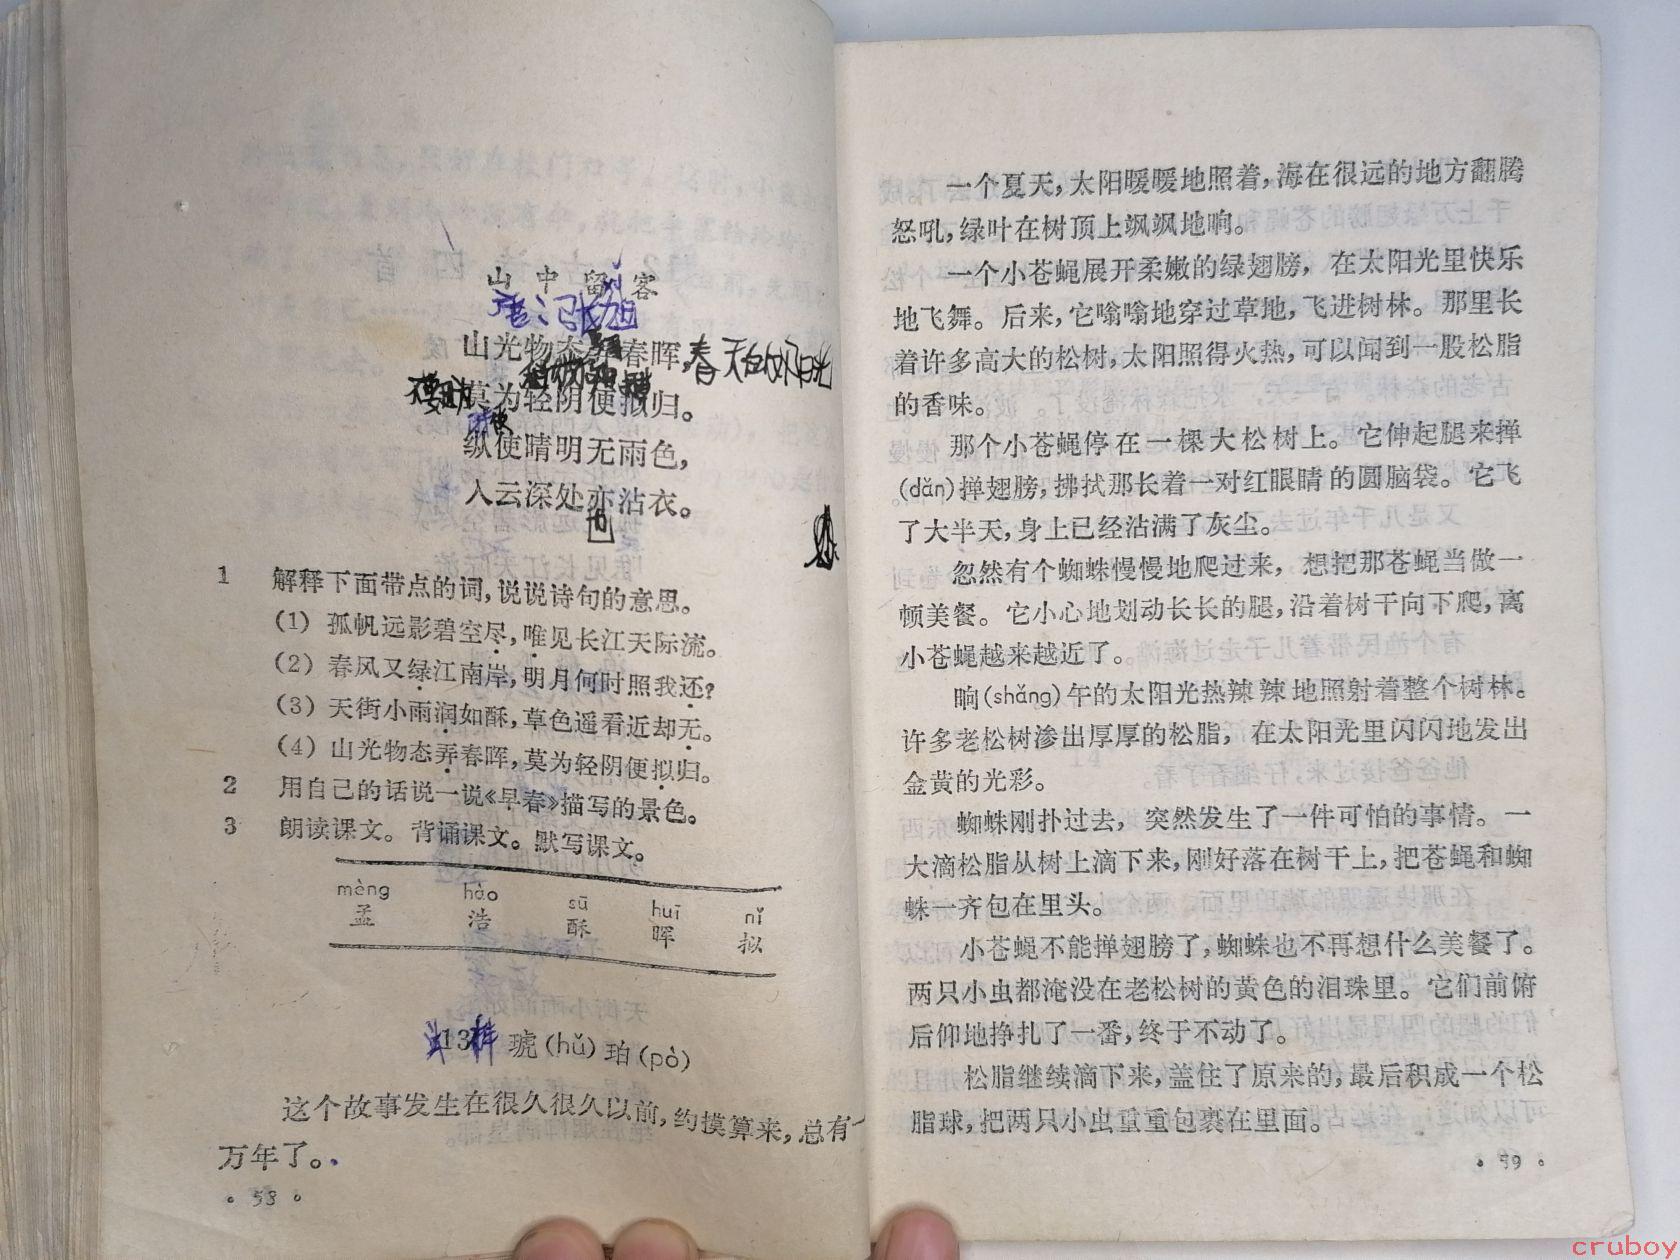 山中留客
唐 张旭
山光物态弄春晖，春天的阳光
莫为轻阴便拟归。
纵使晴明无雨色，
入云深处亦沾衣。
也
1 解释下面带点的词，说说诗句的意思。
(1) 孤帆远影碧空尽，唯见长江天际流。
(2) 春风又绿江南岸，明月何时照我还？
(3) 天街小雨润如酥，草色遥看近却无。
(4) 山光物态弄春晖，莫为轻阴便拟归。
2 用自己的话说一说《早春》描写的景色。
3 朗读课文。背诵课文。默写课文。
mèng hào sū huī nǐ
孟 浩 酥 晖 拟
13 琥(hǔ)珀(pò)
这个故事发生在很久很久以前，约摸算来，总有一
万年了。
· 58 ·
一个夏天，太阳暖暖地照着，海在很远的地方翻腾
怒吼，绿叶在树顶上飒飒地响。
一个小苍蝇展开柔嫩的绿翅膀，在太阳光里快乐
地飞舞。后来，它嗡嗡地穿过草地，飞进树林。那里长
着许多高大的松树，太阳照得火热，可以闻到一股松脂
的香味。
那个小苍蝇停在一棵大松树上。它伸起腿来掸
(dǎn)掸翅膀，拂拭那长着一对红眼睛的圆脑袋。它飞
了大半天，身上已经沾满了灰尘。
忽然有个蜘蛛慢慢地爬过来，想把那苍蝇当做一
顿美餐。它小心地划动长长的腿，沿着树干向下爬，离
小苍蝇越来越近了。
晌(shǎng)午的太阳光热辣辣地照射着整个树林。
许多老松树渗出厚厚的松脂，在太阳光里闪闪地发出
金黄的光彩。
蜘蛛刚扑过去，突然发生了一件可怕的事情。一
大滴松脂从树上滴下来，刚好落在树干上，把苍蝇和蜘
蛛一齐包在里头。
小苍蝇不能掸翅膀了，蜘蛛也不再想什么美餐了。
两只小虫都淹没在老松树的黄色的泪珠里。它们前俯
后仰地挣扎了一番，终于不动了。
松脂继续滴下来，盖住了原来的，最后积成一个松
脂球，把两只小虫重重包裹在里面。
· 59 ·
cruboy